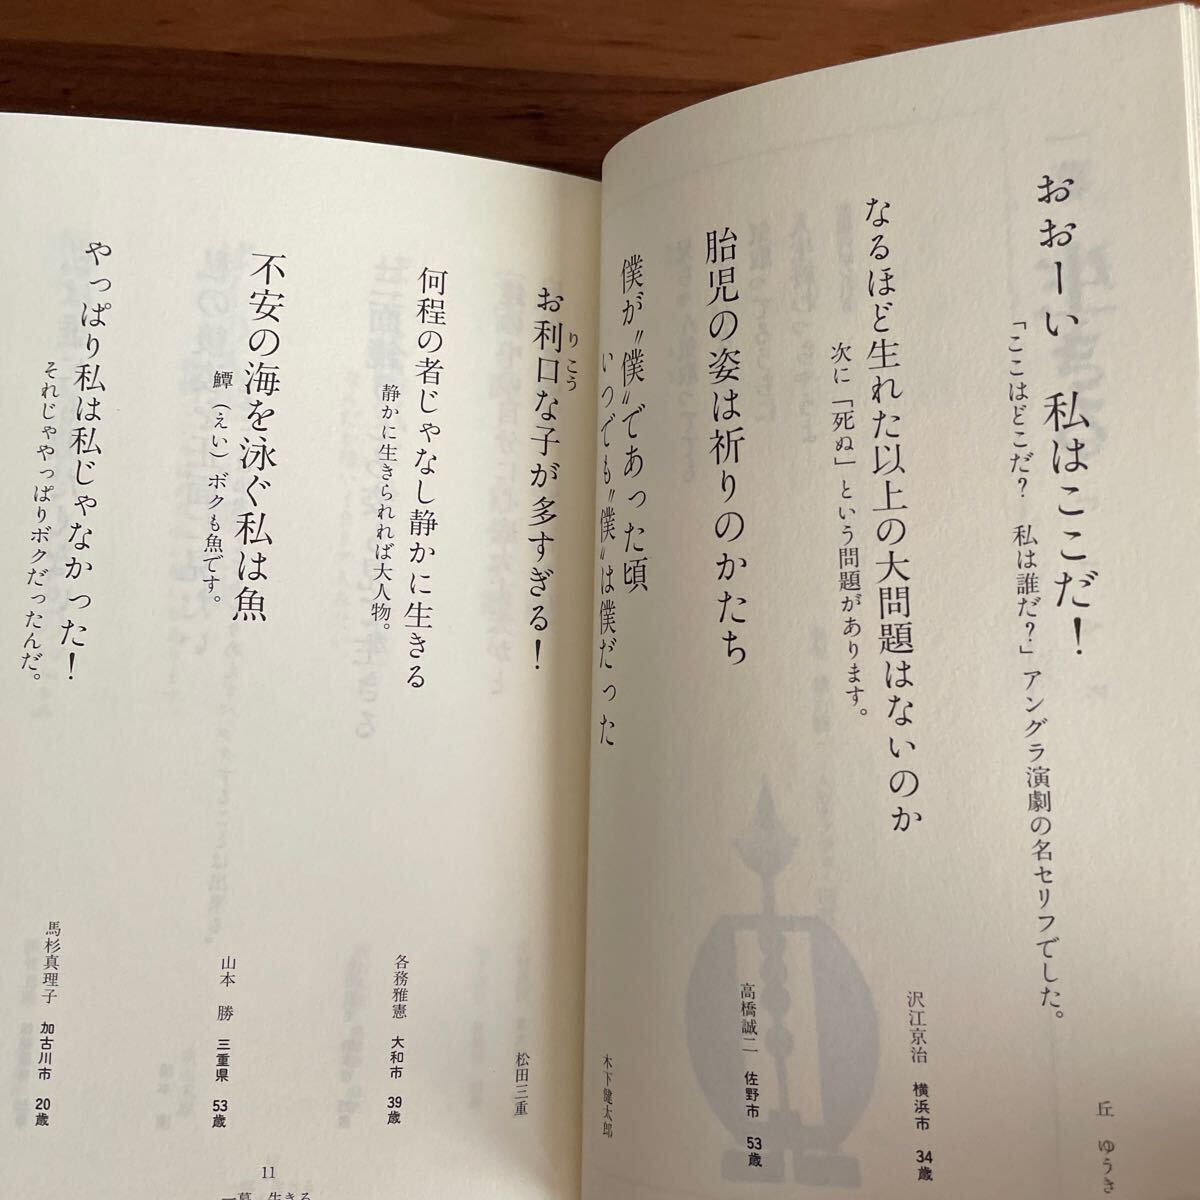 おおーい 私はここだ！
「ここはどこだ？ 私は誰だ？」アングラ演劇の名セリフでした。
丘 ゆうき
なるほど生れた以上の大問題はないのか
次に「死ぬ」という問題があります。
沢江京治 横浜市 34歳
胎児の姿は祈りのかたち
高橋誠二 佐野市 53歳
僕が〝僕〟であった頃
いつでも〝僕〟は僕だった
木下健太郎
お利口な子が多すぎる！
りこう
松田三重
何程の者じゃなし静かに生きる
静かに生きられれば大人物。
各務雅憲 大和市 39歳
不安の海を泳ぐ私は魚
鱏（えい）ボクも魚です。
山本 勝 三重県 53歳
やっぱり私は私じゃなかった！
それじゃやっぱりボクだったんだ。
馬杉真理子 加古川市 20歳
11
一幕 生きる